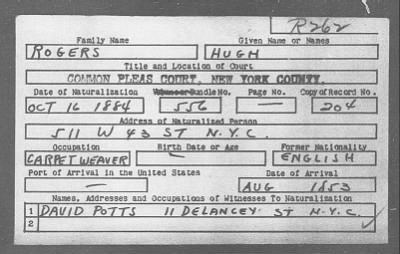 R262
Family Name Given Name or Names
ROGERS HUGH
Title and Location of Court
COMMON PLEAS COURT, NEW YORK COUNTY.
Date of Naturalization Volume or Bundle No. Page No. Copy of Record No.
OCT 16 1884 556 — 204
Address of Naturalized Person
511 W 43 ST N.Y.C.
Occupation Birth Date or Age Former Nationality
CARPET WEAVER — ENGLISH
Port of Arrival in the United States Date of Arrival
— AUG 1853
Names, Addresses and Occupations of Witnesses To Naturalization
1 DAVID POTTS 11 DELANCEY ST N.Y.C.
2